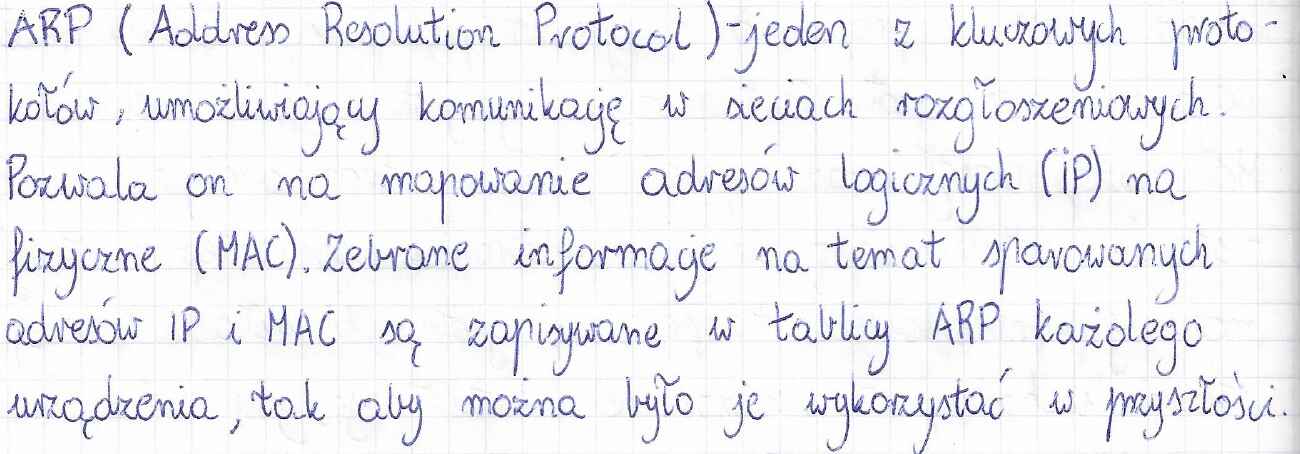 ARP (Address Resolution Protocol) - jeden z kluczowych proto-
kołów, umożliwiający komunikację w sieciach rozgłoszeniowych.
Pozwala on na mapowanie adresów logicznych (IP) na
fizyczne (MAC). Zebrane informacje na temat sparowanych
adresów IP i MAC są zapisywane w tablicy ARP każdego
urządzenia, tak aby można było je wykorzystać w przyszłości.